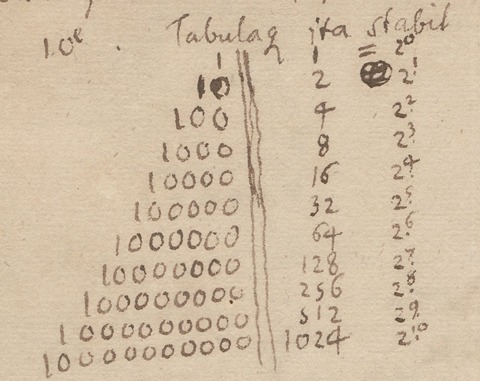 10ᵉ . Tabulaq ita stabit
1 1 = 2⁰
10 2 2¹
100 4 2²
1000 8 2³
10000 16 2⁴
100000 32 2⁵
1000000 64 2⁶
10000000 128 2⁷
100000000 256 2⁸
1000000000 512 2⁹
10000000000 1024 2¹⁰